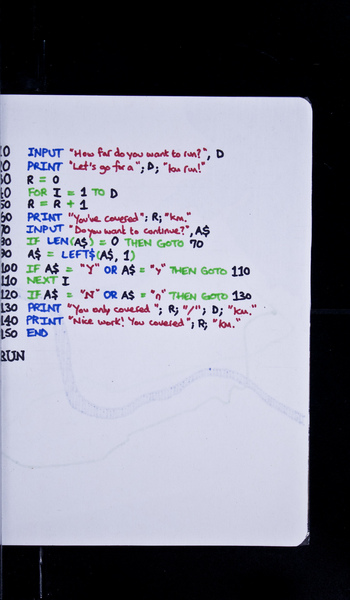 10 INPUT "How far do you want to run?", D
20 PRINT "Let's go for a "; D; "km run!"
30 R = 0
40 FOR I = 1 TO D
50 R = R + 1
60 PRINT "You've covered"; R; "km."
70 INPUT "Do you want to continue?", A$
80 IF LEN(A$) = 0 THEN GOTO 70
90 A$ = LEFT$(A$, 1)
100 IF A$ = "Y" OR A$ = "y" THEN GOTO 110
110 NEXT I
120 IF A$ = "N" OR A$ = "n" THEN GOTO 130
130 PRINT "You only covered "; R; "/"; D; "km."
140 PRINT "Nice work! You covered"; R; "km."
150 END
RUN